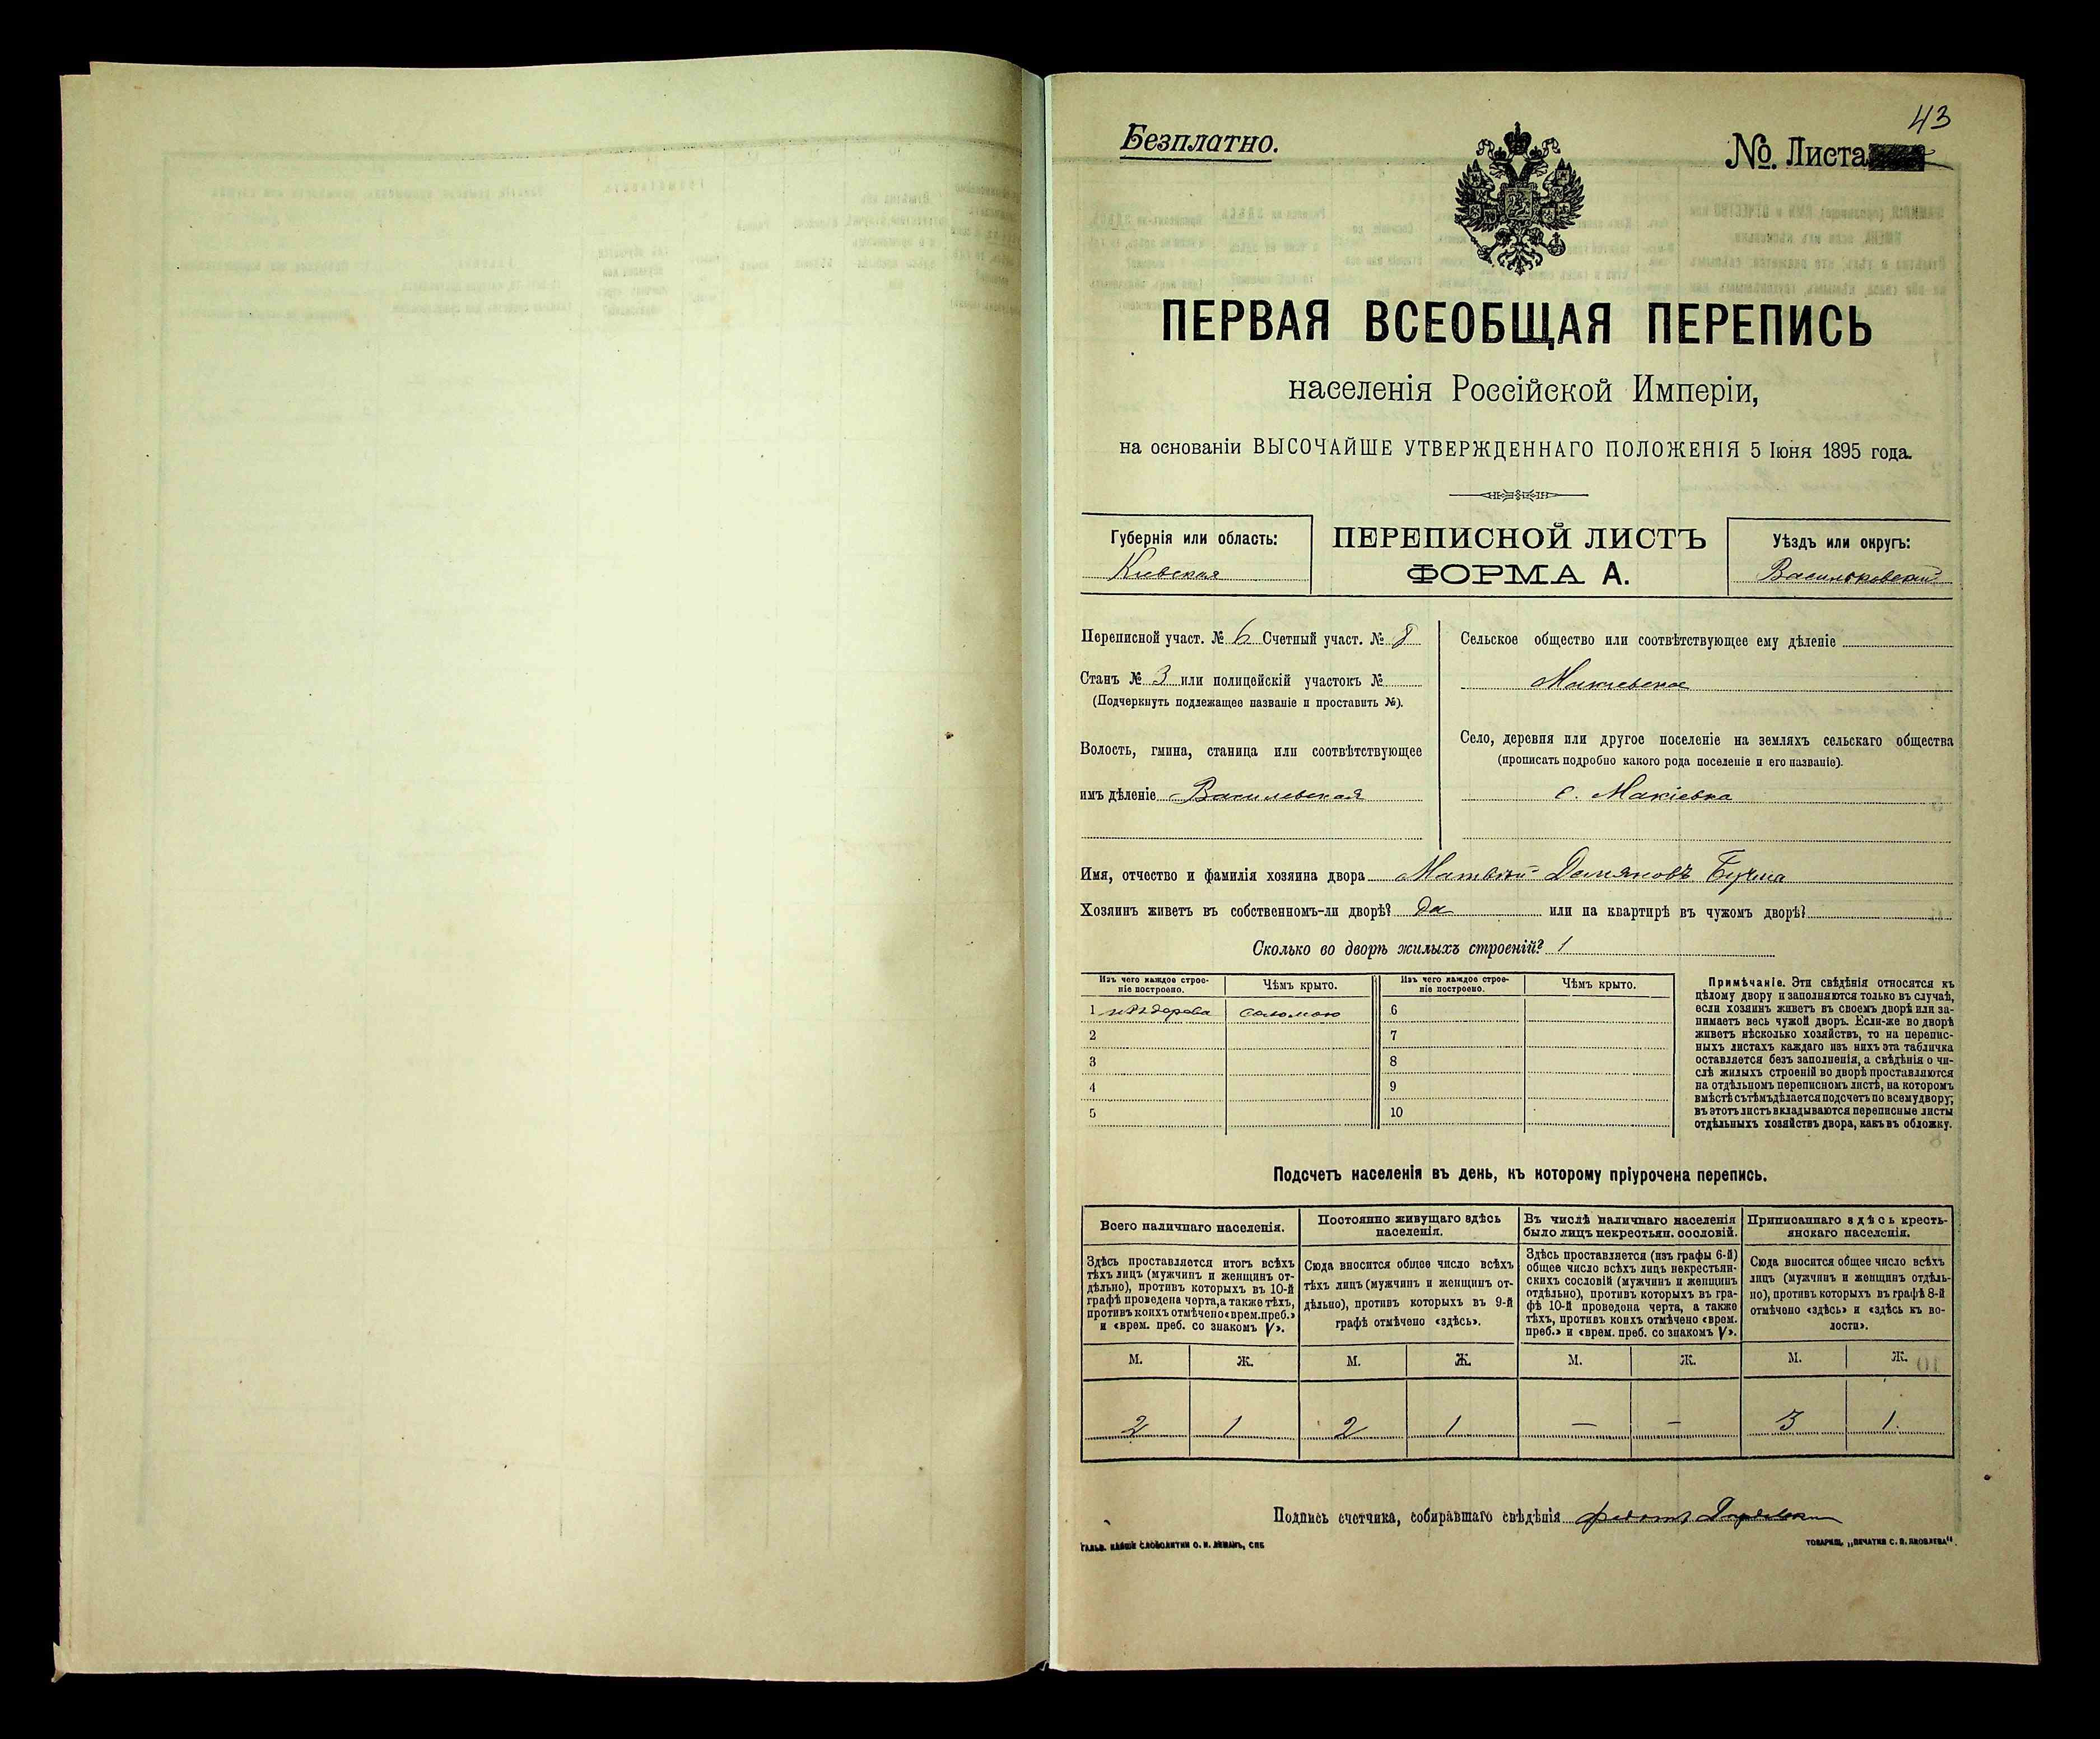 43
Безплатно.
№. Листа
ПЕРВАЯ ВСЕОБЩАЯ ПЕРЕПИСЬ
населенія Россійской Имперіи,
на основаніи ВЫСОЧАЙШЕ УТВЕРЖДЕННАГО ПОЛОЖЕНІЯ 5 Іюня 1895 года.
Губернія или область:
Кіевская
ПЕРЕПИСНОЙ ЛИСТЪ
ФОРМА А.
Уѣздъ или округъ:
Васильковскій
Переписной участ. № 6 Счетный участ. № 8
Станъ № 3 или полицейскій участокъ №
(Подчеркнуть подлежащее названіе и проставить №).
Волость, гмина, станица или соотвѣтствующее
имъ дѣленіе
Сельское общество или соотвѣтствующее ему дѣленіе
Макіевское
Село, деревня или другое поселеніе на земляхъ сельскаго общества
(прописать подробно какого рода поселеніе и его названіе).
с. Макіевка
Имя, отчество и фамилія хозяина двора Матвѣй Демяновъ Бучма
Хозяинъ живетъ въ собственномъ-ли дворѣ? Да или на квартирѣ въ чужомъ дворѣ?
Сколько во дворѣ жилыхъ строеній? 1
Изъ чего каждое строеніе построено.
Чѣмъ крыто.
Изъ чего каждое строеніе построено.
Чѣмъ крыто.
1 изъ дерева соломою 6
2 7
3 8
4 9
5 10
Примѣчаніе. Эти свѣдѣнія относятся къ
цѣлому двору и заполняются только въ случаѣ,
если хозяинъ живетъ въ своемъ дворѣ или за-
нимаетъ весь чужой дворъ. Если-же во дворѣ
живетъ нѣсколько хозяйствъ, то на перепис-
ныхъ листахъ каждаго изъ нихъ эта табличка
оставляется безъ заполненія, а свѣдѣнія о чи-
слѣ жилыхъ строеній во дворѣ проставляются
на отдѣльномъ переписномъ листѣ, на которомъ
вмѣстѣ съ тѣмъ дѣлается подсчетъ по всему двору;
въ этотъ листъ вкладываются переписные листы
отдѣльныхъ хозяйствъ двора, какъ въ обложку.
Подсчетъ населенія въ день, къ которому пріурочена перепись.
Всего наличнаго населенія.
Постоянно живущаго здѣсь
населенія.
Въ числѣ наличнаго населенія
было лицъ некрестьян. сословій.
Приписаннаго здѣсь кресть-
янскаго населенія.
Здѣсь проставляется итогъ всѣхъ
тѣхъ лицъ (мужчинъ и женщинъ от-
дѣльно), противъ которыхъ въ 10-й
графѣ проведена черта, а также тѣхъ,
противъ коихъ отмѣчено «врем. преб.»
и «врем. преб. со знакомъ V».
Сюда вносится общее число всѣхъ
тѣхъ лицъ (мужчинъ и женщинъ от-
дѣльно), противъ которыхъ въ 9-й
графѣ отмѣчено «здѣсь».
Здѣсь проставляется (изъ графы 6-й)
общее число всѣхъ лицъ некрестьян-
скихъ сословій (мужчинъ и женщинъ
отдѣльно), противъ которыхъ въ гра-
фѣ 10-й проведена черта, а также
тѣхъ, противъ коихъ отмѣчено «врем.
преб.» и «врем. преб. со знакомъ V».
Сюда вносится общее число всѣхъ
лицъ (мужчинъ и женщинъ отдѣль-
но), противъ которыхъ въ графѣ 8-й
отмѣчено «здѣсь» и «здѣсь къ во-
лости».
М. Ж. М. Ж. М. Ж. М. Ж.
2 1 2 1 — — 3 1
Подпись счетчика, собиравшаго свѣдѣнія
ГАЛЬВ. КЛИШЕ СЛОВОЛИТНИ О. И. ЛЕМАНЪ, СПБ
ТОВАРИЩ. „ПЕЧАТНЯ С. П. ЯКОВЛЕВА“.